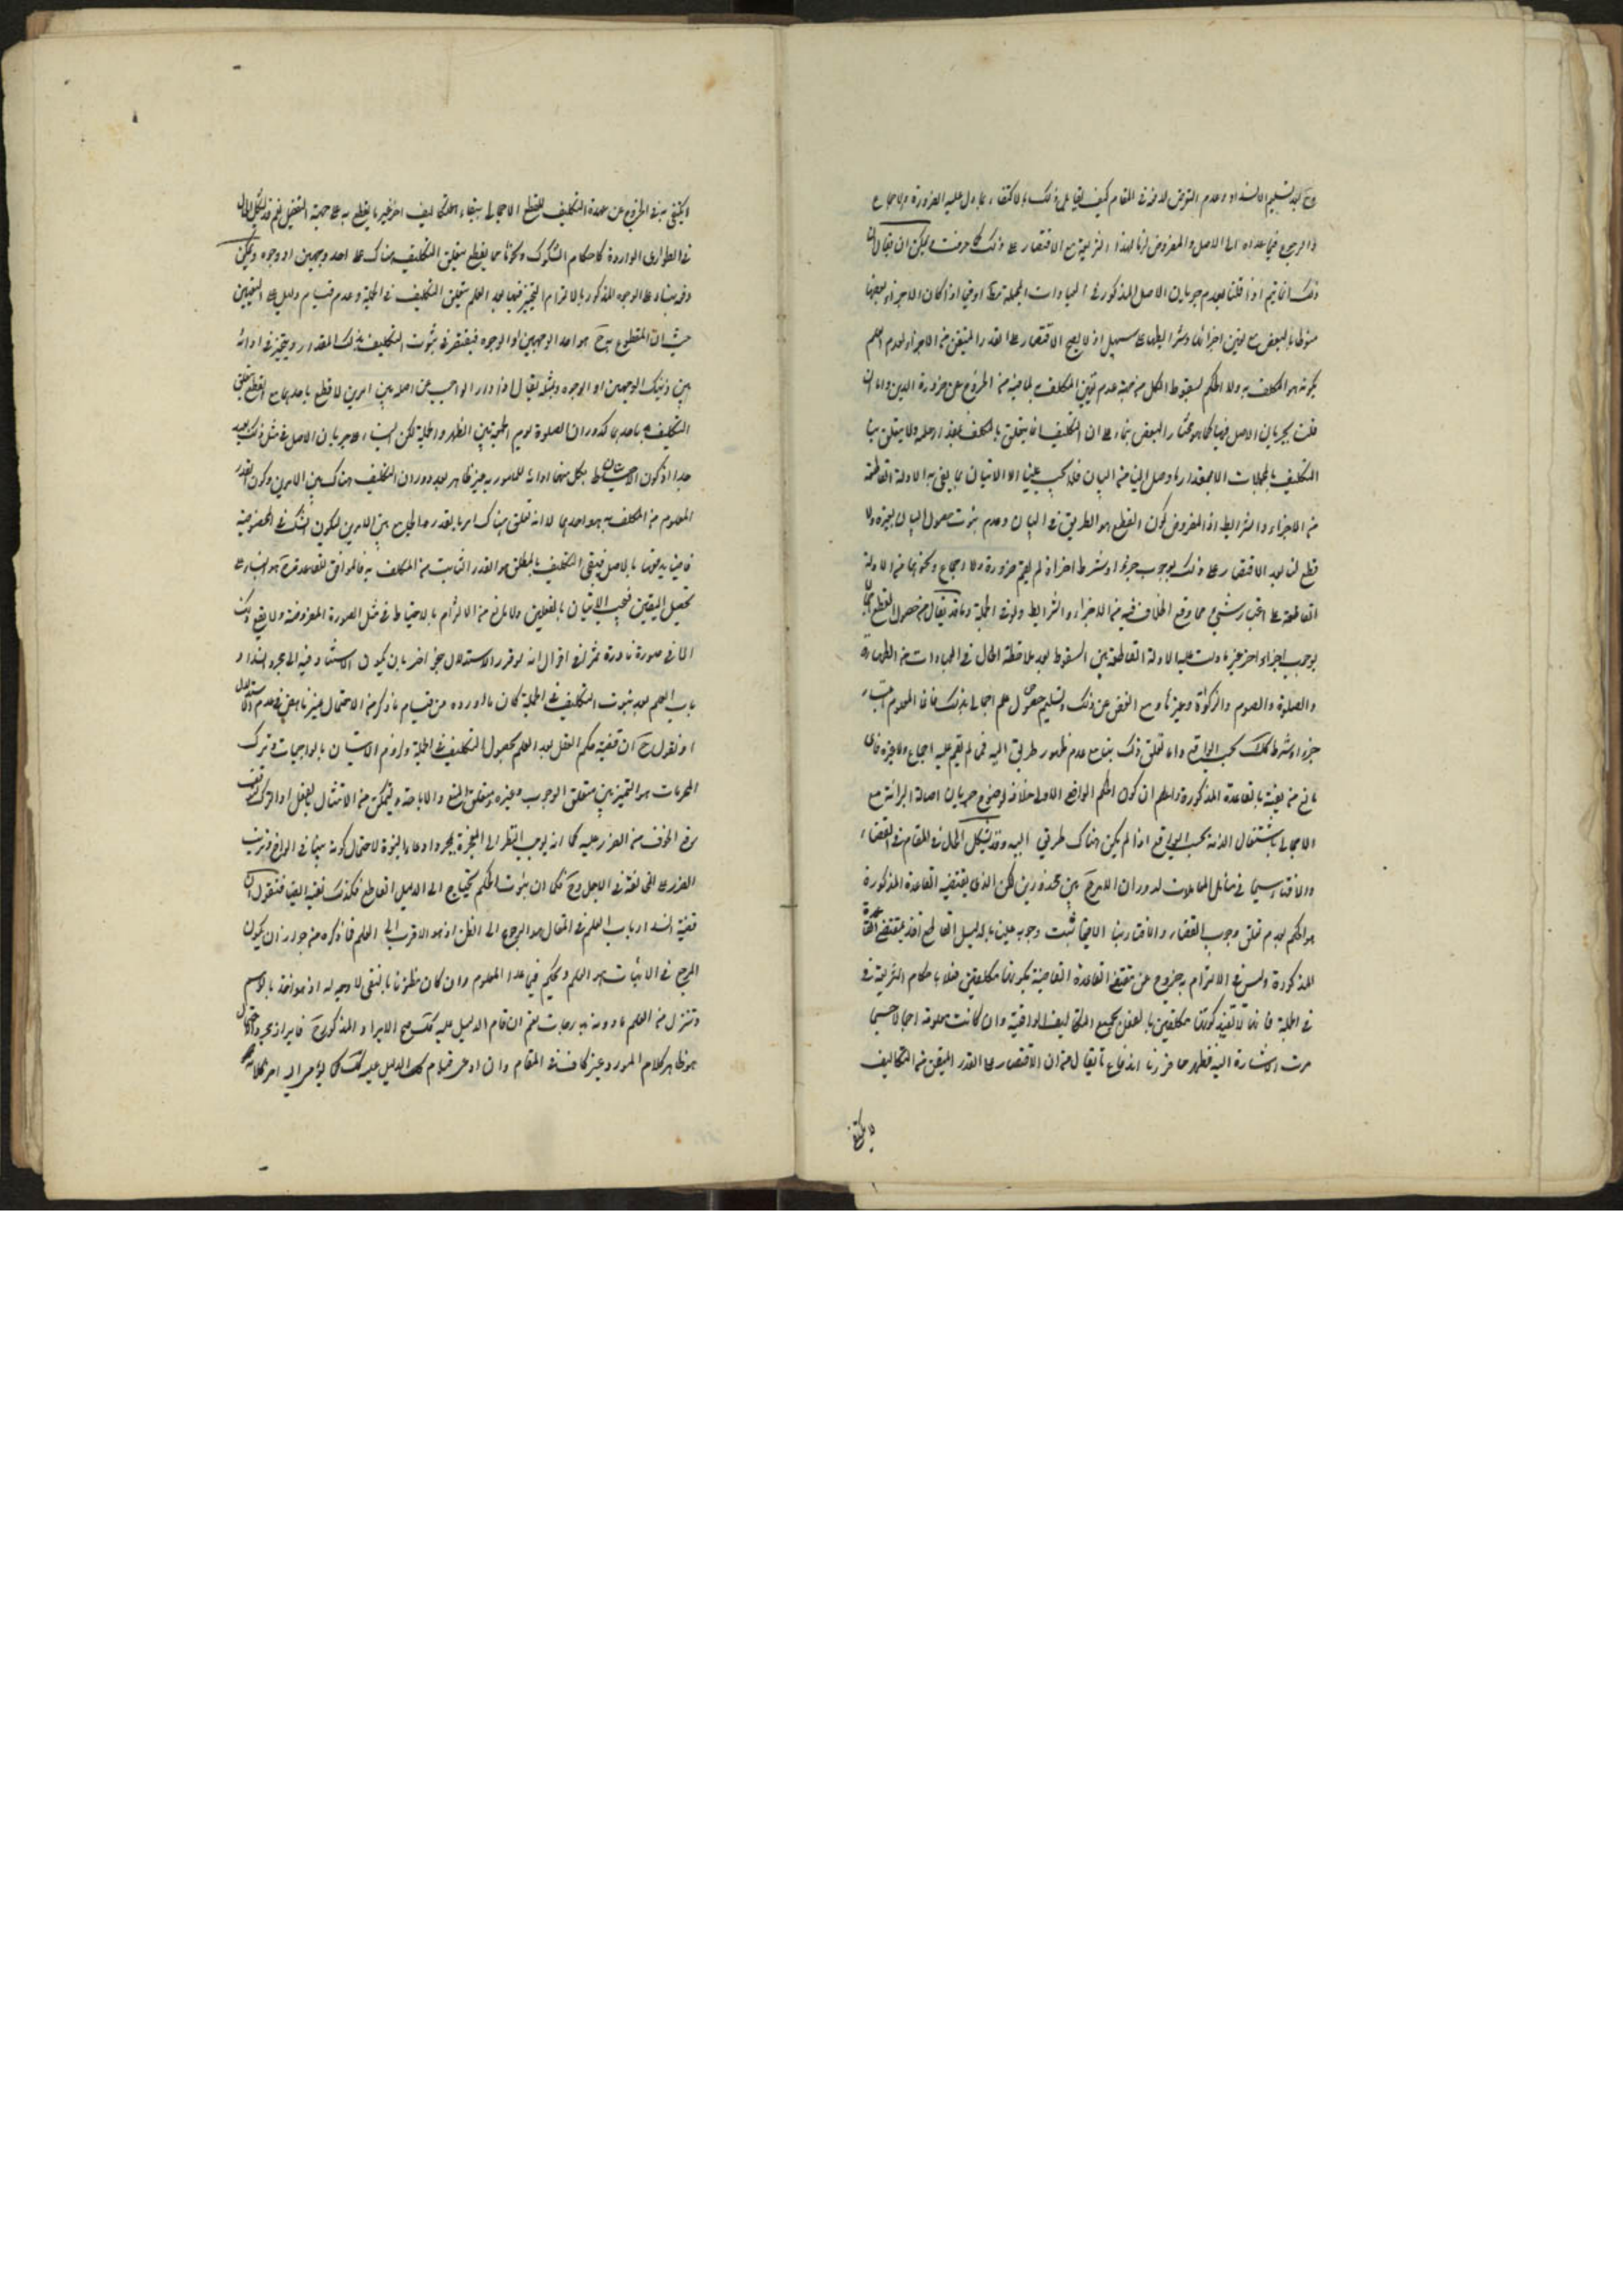 وح بعد تسليم الانسداد وعدم التوقف لا فرق في المقام كيف يقال على ذلك بالاكتفاء بما دل عليه الضرورة والاجماع
والرجوع فيما عداه الى الاصل والمفروض لزنا لهذا الشريعة مع الاقتصار على ذلك كما عرفت ويمكن ان يقال ان
ذلك انما يتم اذا قلنا بعدم جريان الاصل المذكور في العبادات المجملة مط او في اذا كان الاجزاء بعضها
منوطا بالبعض مع تعيين اجزائها وشرايطها سبيل اذ لا يصح الاقتصار على القدر المتيقن من الاجزاء لعدم العلم
بكونه هو المكلف به ولا الحكم بسقوط الكل من جهة عدم تعين المكلف به لما فيه من الخروج عن ضرورة الدين واما ان
قلت بجريان الاصل فيها كما هو مختار البعض بناء على ان التكليف انما يتعلق بالمكلف بقدر علمه ولا يتعلق بنا
التكليف بالمجملات الا بمقدار ما وصل الينا من البيان فلا يجب علينا الا الاتيان بما يفي به الادلة القاطعة
من الاجزاء والشرايط اذ المفروض كون القطع هو الطريق في البيان وعدم ثبوت حصول البيان بغيره ولا
قطع لنا بعد الاقتصار على ذلك بوجوب جزء او شرط اخر اذ لم يقم ضرورة ولا اجماع ونحوهما من الادلة
القاطعة على اعتبار شيء مما وقع الخلاف فيه من الاجزاء والشرايط ولو في الجملة وما قد يقال من حصول القطع اجمالا
بوجوب اجزاء اخر غير ما دلت عليه الادلة القاطعة بين السقوط بعد ملاحظة الحال في العبادات من الطهارة
والصلوة والصوم والزكوة وغيرها ومع الغض عن ذلك وتسليم حصول علم اجمالي بذلك فانما المعلوم اعتبار
جزء او شرط كذلك بحسب الواقع واما تعلق ذلك بنا مع عدم ظهور طريق اليه فمما لم يقم عليه اجماع ولا غيره فاي
مانع من نفيه بالقاعدة المذكورة والعلم ان كون الحكم الواقعي الاولى خلافه لا يمنع جريان اصالة البرائة مع
الاجمالي باشتغال الذمة بحسب الواقع اذا لم يكن هناك طريق اليه وقد يشكل الحال في المقام في القضاء
والافتاء سيما في مسائل المعاملات لدوران الامر ح بين محذورين لكن الذي يقتضيه القاعدة المذكورة
هو الحكم بعدم تعلق وجوب القضاء والافتاء بنا الا فيما ثبت وجوبه علينا بالدليل القاطع اخذا بمقتضى القاعدة
المذكورة وليس في الالتزام به خروج عن مقتضى القاعدة القاضية بكوننا مكلفين فعلا باحكام الشريعة في
في الجملة فانها لا تفيد كوننا مكلفين بالفعل بجميع التكاليف الواقعية وان كانت معلومة اجمالا حسبما
مرت الاشارة اليه فظهر مما قررنا اندفاع ما يقال من ان الاقتصار على القدر المتيقن من التكاليف
لا يكتفى
لا يكتفى به في الخروج عن عهدة التكليف للقطع الاجمالي ببقاء تكاليف اخر غير ما يقطع به على جهة التفصيل نعم قد يشكل الحال
في الطواري الواردة كاحكام الشكوك ونحوها مما يقطع بتعلق التكليف هناك على احد وجهين او وجوه ويمكن
دفعه بناء على الوجه المذكور بالالتزام بالتخيير فيها بعد العلم بتعلق التكليف في الجملة وعدم قيام دليل على التعيين
حيث ان المقطوع به ح هو احد الوجهين او الوجوه فيقتصر في ثبوت التكليف بذلك المقدار ويتخير في ادائه
بين ذينك الوجهين او الوجوه ومثله يقال اذا دار الواجب من اصله بين امرين لا قطع باحدهما مع القطع بتعلق
التكليف باحدهما كدوران الصلوة يوم الجمعة بين الظهر والجمعة لكن البناء على جريان الاصل في مثل ذلك بعيد
جدا اذ كون الاحتياط بكل منهما اداء للمامور به غير ظاهر بعد دوران التكليف هناك بين الامرين وكون القدر
المعلوم من المكلف به هو احدهما لا انه تعلق هناك امر بالقدر الجامع بين الامرين ليكون الشك في الخصوصية
قاضيا بدفعها بالاصل فيبقى التكليف بالمطلق هو القدر الثابت من المكلف به فالموافق للقاعدة ح هو البناء على
تحصيل اليقين فيجب الاتيان بالفعلين ولا مانع من الالتزام بالاحتياط في مثل الصورة المفروضة ولا يقع ذلك
الا في صورة نادرة ثم لنا في اقول انه لو قرر الاستدلال بنحو اخر بان يكون الاستناد فيه الى مجرد انسداد
باب العلم بعد ثبوت التكليف في الجملة كان ما اورده من قيام ما ذكره من الاحتمال غير ناهض في هدم الاستدلال
او نقول ح ان قضية حكم العقل بعد العلم بحصول التكليف في الجملة ولزوم الاتيان بالواجبات وترك
المحرمات هو التمييز بين متعلق الوجوب وغيره ومتعلق المنع والاباحة ويتمكن من الامتثال بالفعل او الترك ودفع
الخوف من الضرر عليه كما انه يوجب النظر الى المعجزة بمجرد ادعاء النبوة لاحتمال كونه نبيا في الواقع وترتب
الضرر على المخالفة في الاجل وح فكما ان ثبوت الحكم يحتاج الى الدليل القاطع فكذلك نفيه ايضا فنقول ان
قضية انسداد باب العلم في المقال هو الرجوع الى الظن اذ هو الاقرب الى العلم فما ذكره من جواز ان يكون
المرجع في الاثبات هو العلم ويحكم فيما عدا المعلوم وان كان مظنونا بالنفي لا وجه له اذ هو اخذ بالوهم
وتنزل من العلم ما دونه بدرجات نعم ان قام الدليل عليه كذلك صح الايراد المذكور ح فايراده بمجرد الاحتمال
هو ظاهر كلام المورد غير كاف في المقام وان ادعى قيام ذلك الدليل عليه كذلك كما يؤمي اليه اخر كلامه